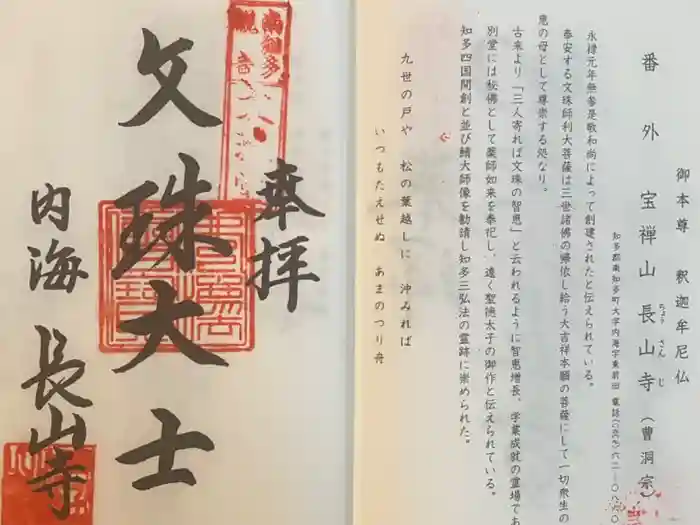 番外 宝禅山 長山寺(曹洞宗)
ちょうさんじ
御本尊 釈迦牟尼仏
知多郡南知多町大字内海字東前田
永禄元年無参是敬和尚によって創建されたと伝えられている。
奉安する文珠師利大菩薩は三世諸佛の帰依し給う大吉祥本願の菩薩にして一切衆生の
恵の母として尊崇する処なり。
古来より「三人寄れば文珠の智恵」と云われるように智恵増長、学業成就の霊場であ
別堂には秘佛として薬師如来を奉祀し、遠く聖徳太子の御作と伝えられている。
知多四国開創と並び鯖大師像を勧請し知多三弘法の霊跡に崇められた。
九世の戸や 松の葉越しに 沖みれば
いつもたえせぬ あまのつり舟
奉拝
文珠大士
内海 長山寺
南知多
観音